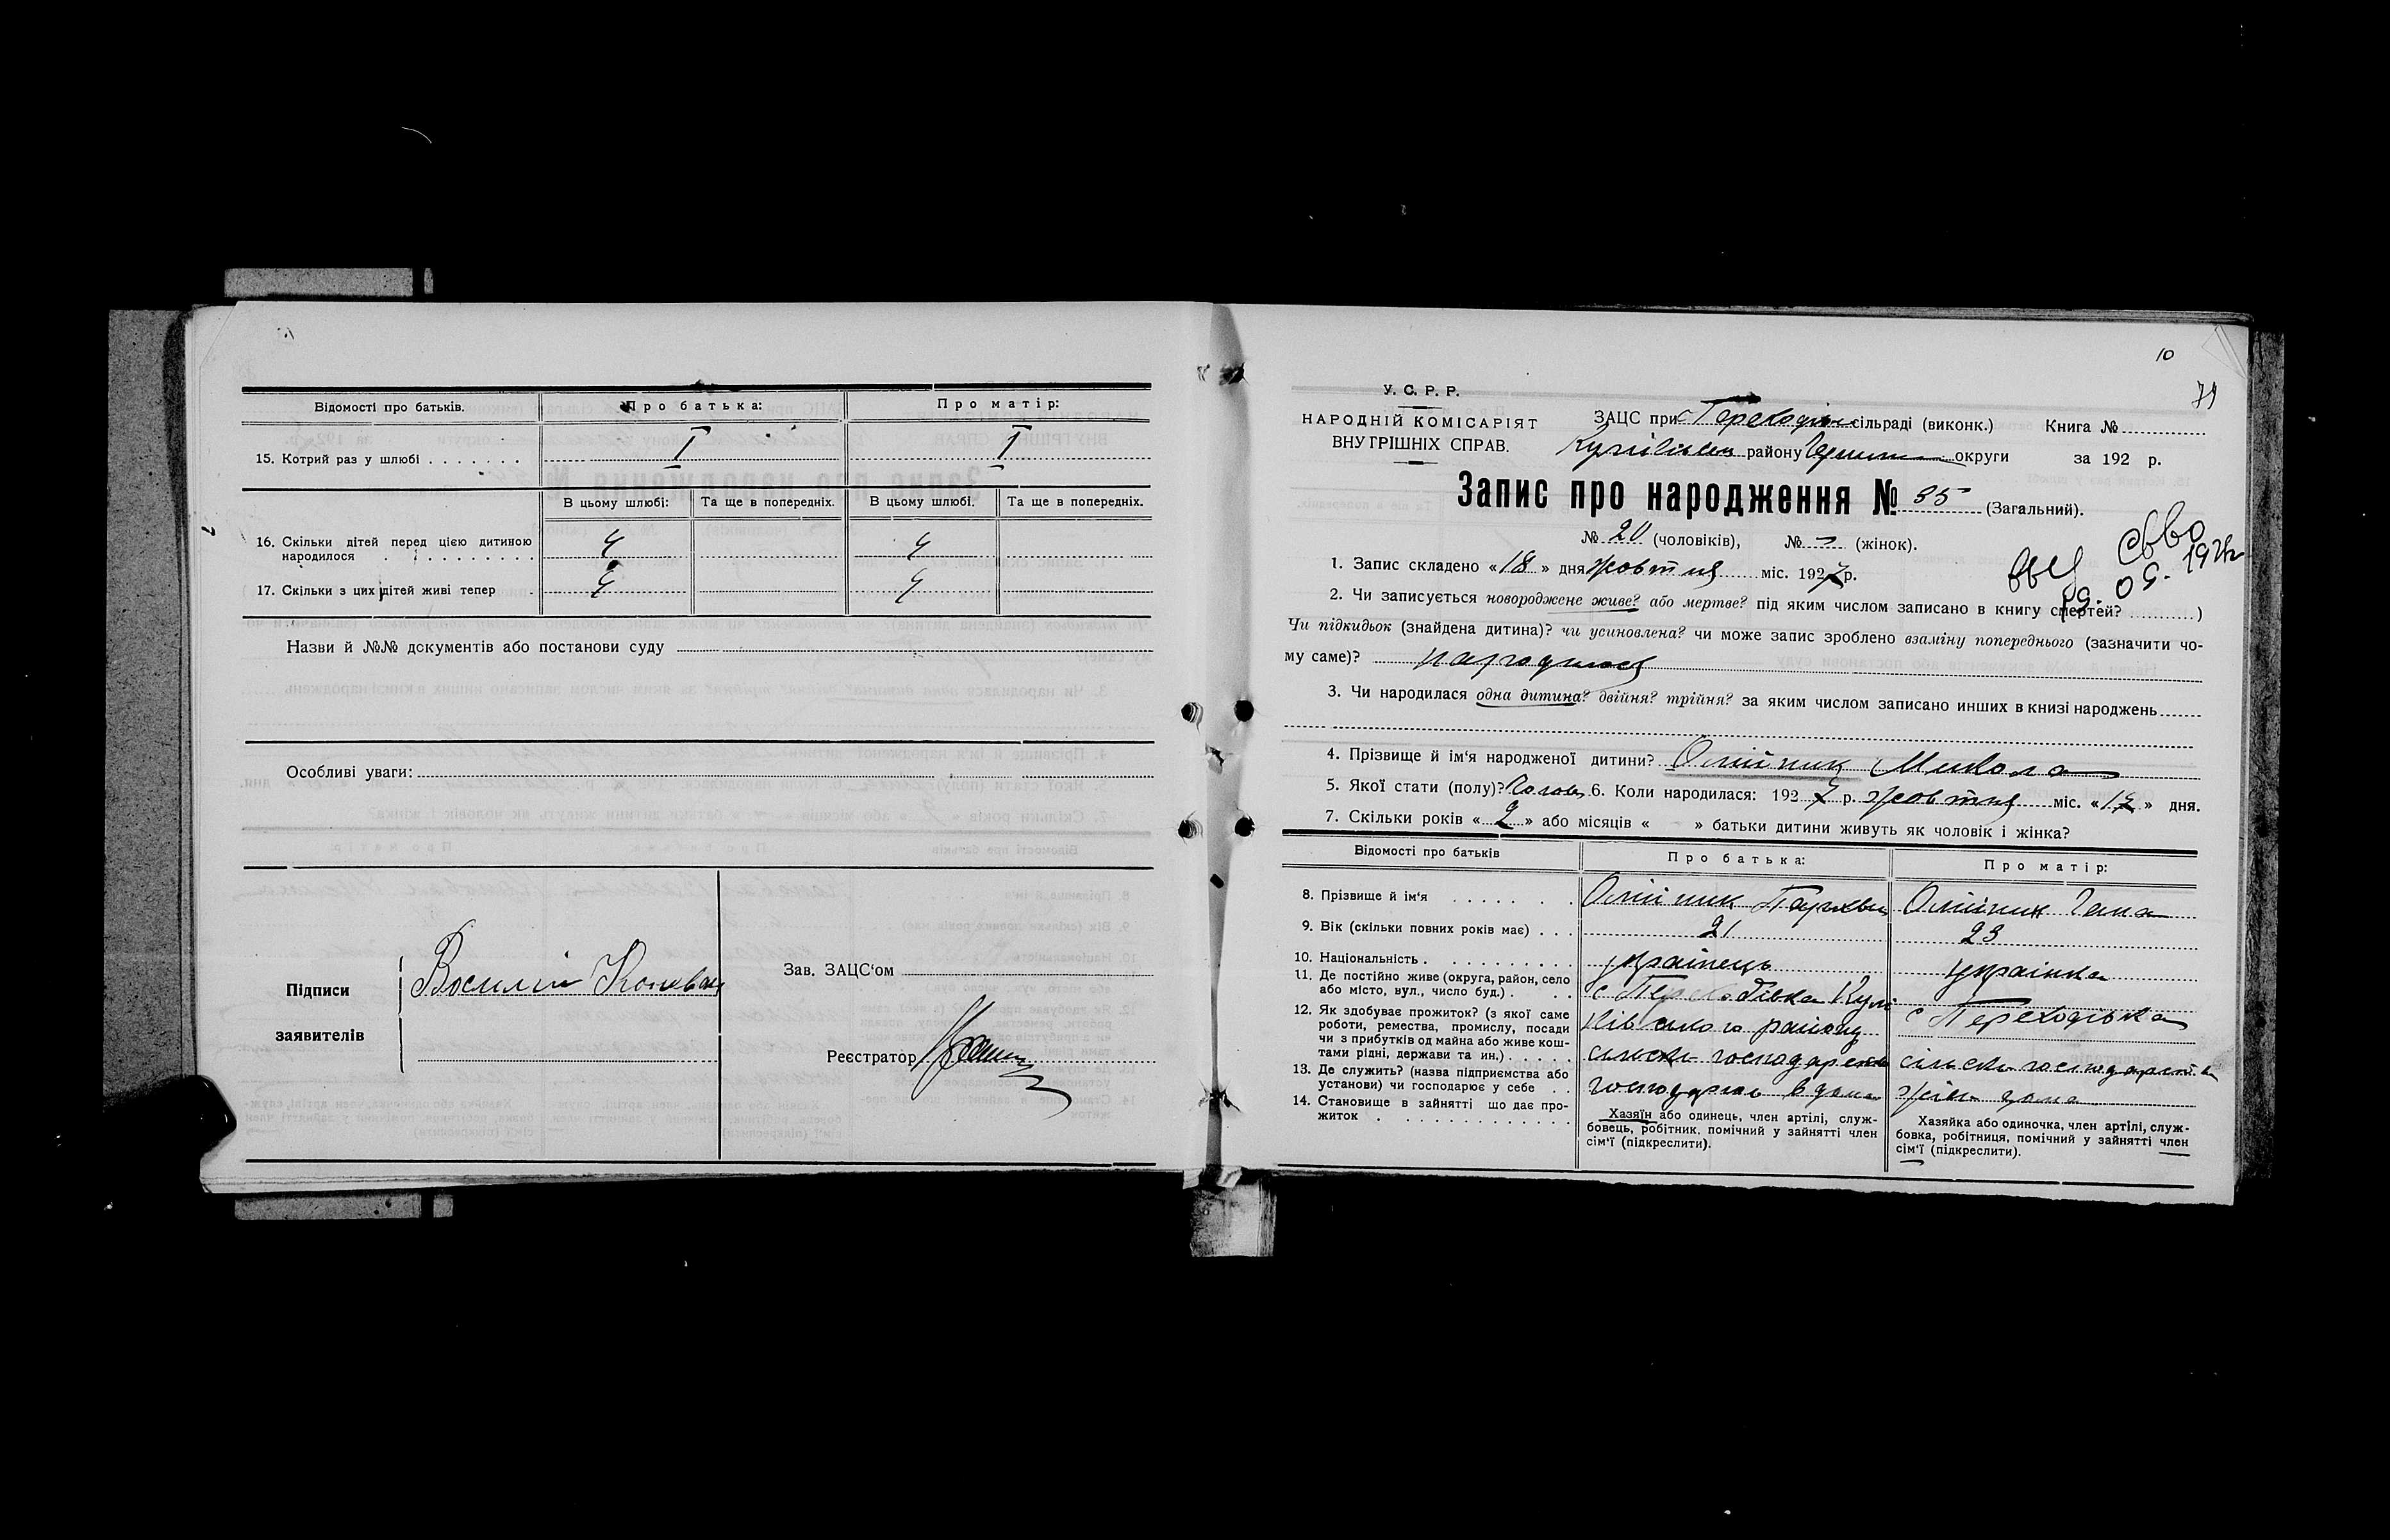 Відомості про батьків. Про батька: Про матір:
15. Котрий раз у шлюбі I I
В цьому шлюбі: Та ще в попередніх. В цьому шлюбі. Та ще в попередніх.
16. Скільки дітей перед цією дитиною
народилося 4 4
17. Скільки з цих дітей живі тепер 4 4
Назви й №№ документів або постанови суду
Особливі уваги:
Підписи
заявителів
Василій
Зав. ЗАЦС'ом
Реєстратор
10
79
У. С. Р. Р.
НАРОДНІЙ КОМІСАРІЯТ
ВНУТРІШНІХ СПРАВ.
ЗАЦС при сільраді (виконк.) Книга №
району округи за 192 р.
Запис про народження № 35 (Загальний).
№ 20 (чоловіків), № (жінок).
1. Запис складено «18» дня жовтня міс. 1927 р.
2. Чи записується новороджене живе? або мертве? під яким числом записано в книгу смертей? )
Чи підкидьок (знайдена дитина)? чи усиновлена? чи може запис зроблено взаміну попереднього (зазначити чо-
му саме)? народився
3. Чи народилася одна дитина? двійня? трійня? за яким числом записано инших в книзі народжень
4. Прізвище й ім'я народженої дитини? Олійник Микола
5. Якої стати (полу)? 6. Коли народилася: 1927 р. жовтня міс. «17» дня.
7. Скільки років «2» або місяців « » батьки дитини живуть як чоловік і жінка?
Відомості про батьків Про батька: Про матір:
8. Прізвище й ім'я Олійник Олійник Гана
9. Вік (скільки повних років має) 21 23
10. Національність українець українка
11. Де постійно живе (округа, район, село
або місто, вул., число буд.) с Переходівка с Переходівка
12. Як здобуває прожиток? (з якої саме
роботи, ремества, промислу, посади району
чи з прибутків од майна або живе кош-
тами рідні, держави та ин.)
13. Де служить? (назва підприємства або
установи) чи господарює у себе
14. Становище в зайнятті що дає про-
житок
Хазяїн або одинець, член артілі, служ-
бовець, робітник, помічний у зайнятті член
сім'ї (підкреслити).
Хазяйка або одиночка, член артілі, служ-
бовка, робітниця, помічний у зайнятті член
сім'ї (підкреслити).